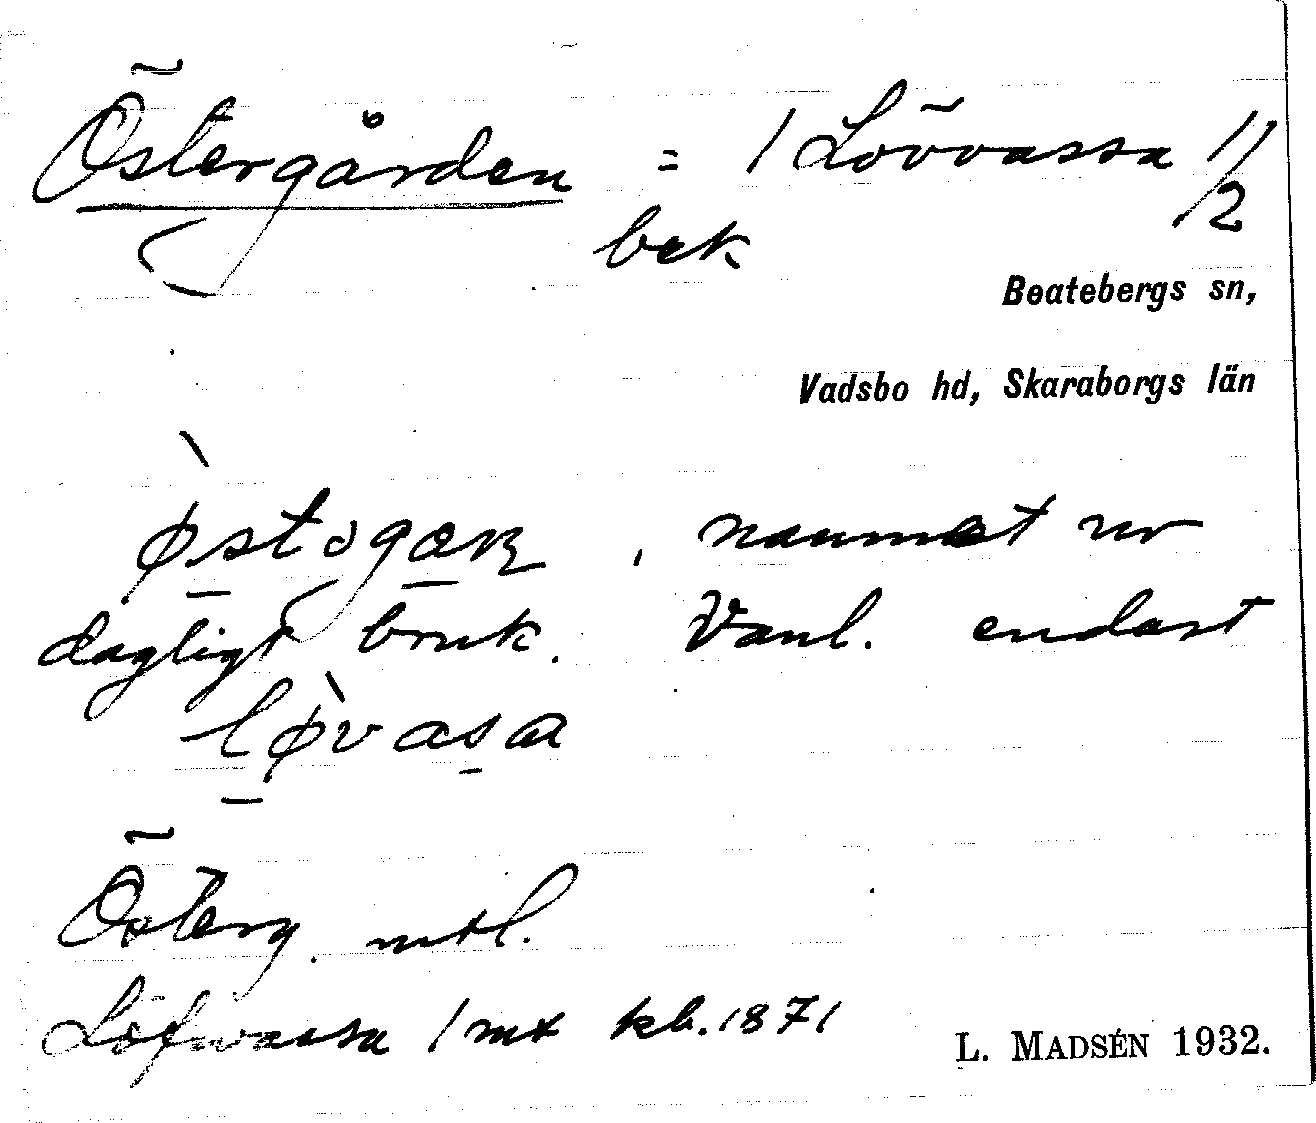 Östergården = 1 Lövvassa 1/2
bek
Beatebergs sn,
Vadsbo hd, Skaraborgs län
østəgaɳ, namnet ur
dagligt bruk. Vanl. endast
løvasa
Österg. mtl.
Löfwassa 1 mt kb. 1871
L. MADSÉN 1932.